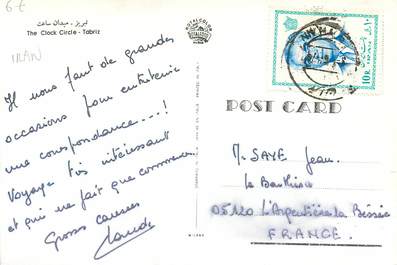 6€
IRAN
تبریز - میدان ساعت
The Clock Circle - Tabriz
Il nous faut de grandes
occasions pour entretenir
une correspondance---!
Voyage très intéressant
et qui ne fait que commencer
Grosses
Claude
MILANO
POST CARD
10R
M. SAYE Jean.
05120 L'Argentière la Béssée
FRANCE.